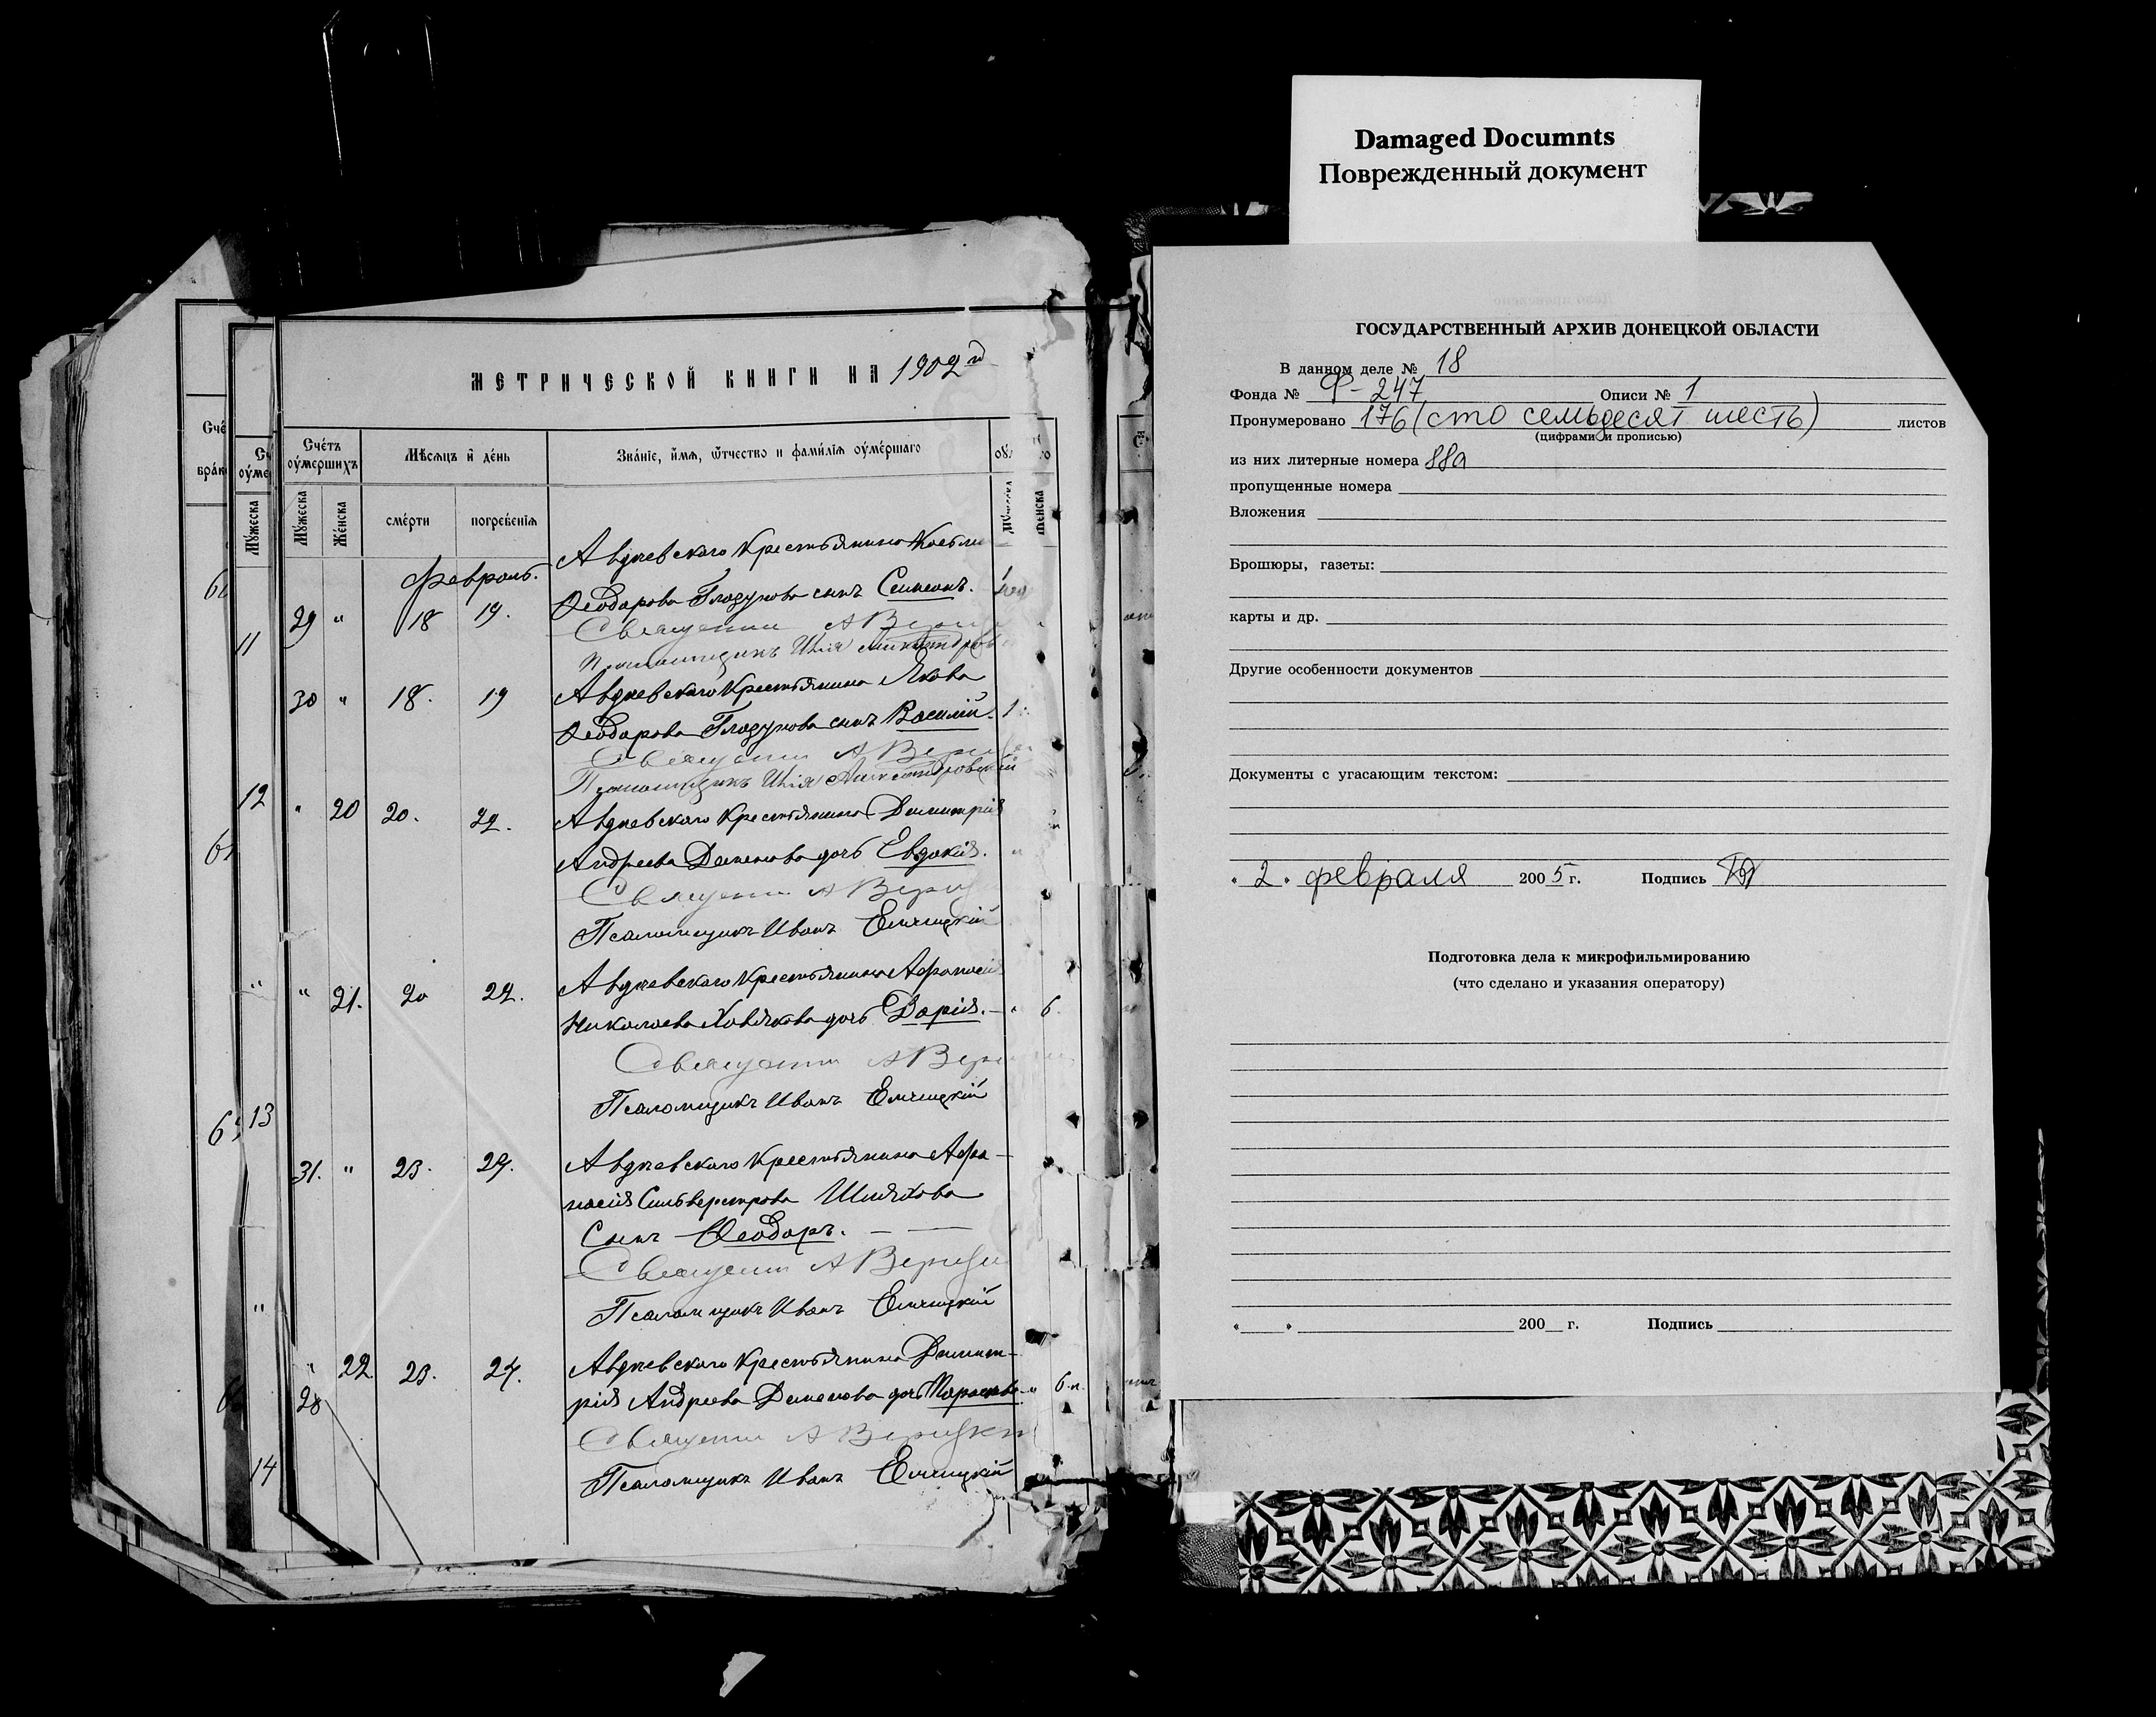 Damaged Documnts
Поврежденный документ
МЕТРИЧЕСКОЙ КНИГИ НА 1902 г
Счетъ оумершихъ
Мѣсяцъ и день
Званіе, имя, ѿчество и фамилія оумершаго
Мужеска
Женска
смерти
погребенія
Мужеска
Женска
Февраль.
Авдѣевского Крестьянина
29 " 18 19. Ѳеодорова Глазунова сынъ Симеонъ.
Священник А
Псаломщикъ Илія
30 " 18. 19 Авдѣевского Крестьянина Якова
Ѳеодорова Глазунова сынъ Василій. 1
Священник А
Псаломщикъ Илія Александровский
" 20 20. 22. Авдѣевского Крестьянина Димитрія
Андреева дочь Евдокия.
Священник А
Псаломщикъ Иванъ
" 21. 20 22. Авдѣевского Крестьянина Афанасія
Николаева дочь Дарія. — " 6.
Священник А
Псаломщикъ Иванъ
31. " 23. 24. Авдѣевского Крестьянина Афа-
насія Сильверстрова Шляхова
Сынъ Ѳеодоръ. — —
Священник А
Псаломщикъ Иванъ
" 22 23. 24. Авдѣевского Крестьянина Димит-
рія Андреева дочь " 6.
28
Священник А
Псаломщикъ Иванъ
11
12
13
14
ГОСУДАРСТВЕННЫЙ АРХИВ ДОНЕЦКОЙ ОБЛАСТИ
В данном деле № 18
Фонда № Ф-247 Описи № 1
Пронумеровано 176 (сто семьдесят шесть) листов
(цифрами и прописью)
из них литерные номера 88а
пропущенные номера
Вложения
Брошюры, газеты:
карты и др.
Другие особенности документов
Документы с угасающим текстом:
« 2 » февраля 2005 г. Подпись
Подготовка дела к микрофильмированию
(что сделано и указания оператору)
« » 200 г. Подпись